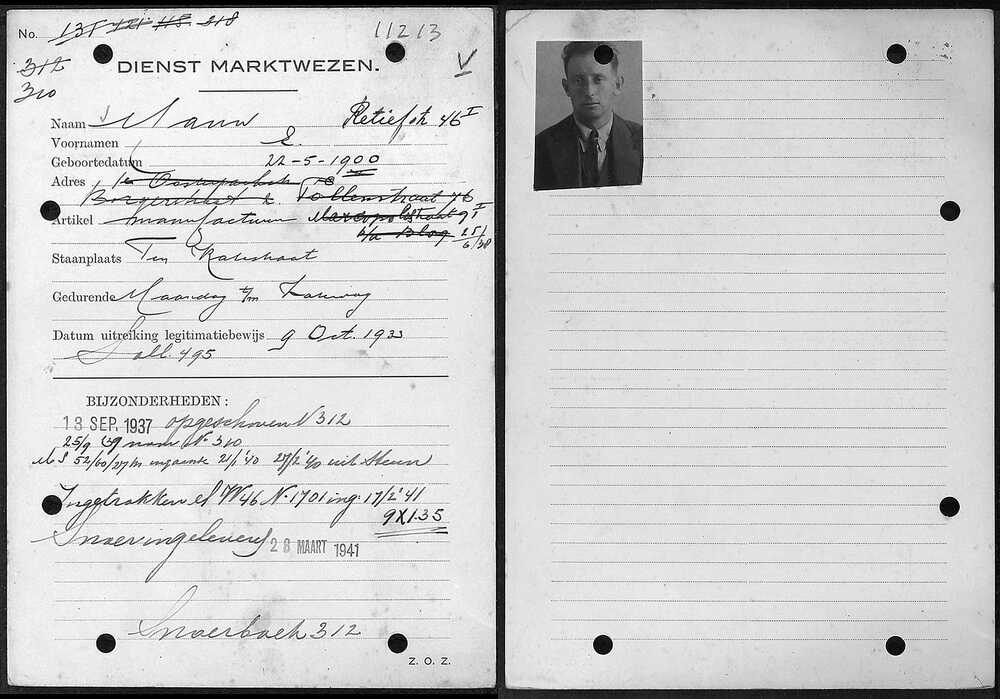 No. 131 121 115 318
11213
312
310
V
DIENST MARKTWEZEN.
Naam Mann Retiefstr 46 I
Voornamen E.
Geboortedatum 22-5-1900
Adres 1e Oosterparkstr
Borgerstraat Tollensstraat 76
Artikel manufacturen Marcopolostraat 9 I
b/a Blog 25/6/38
Staanplaats Ten Katestraat
Gedurende Maandag t/m Zaterdag
Datum uitreiking legitimatiebewijs 9 Oct. 1933
Soll. 495
BIJZONDERHEDEN:
13 SEP. 1937 opgeschoven N 312
25/9 '39 naar No 310
M S 52/60/27 M ingaande 21/1 '40 27/2 '40 uit steun
Ingetrokken W46 N. 1701 ing: 17/2 '41
9 X 1.35
Snoer ingeleverd 28 MAART 1941
Snoerboek 312
Z. O. Z.